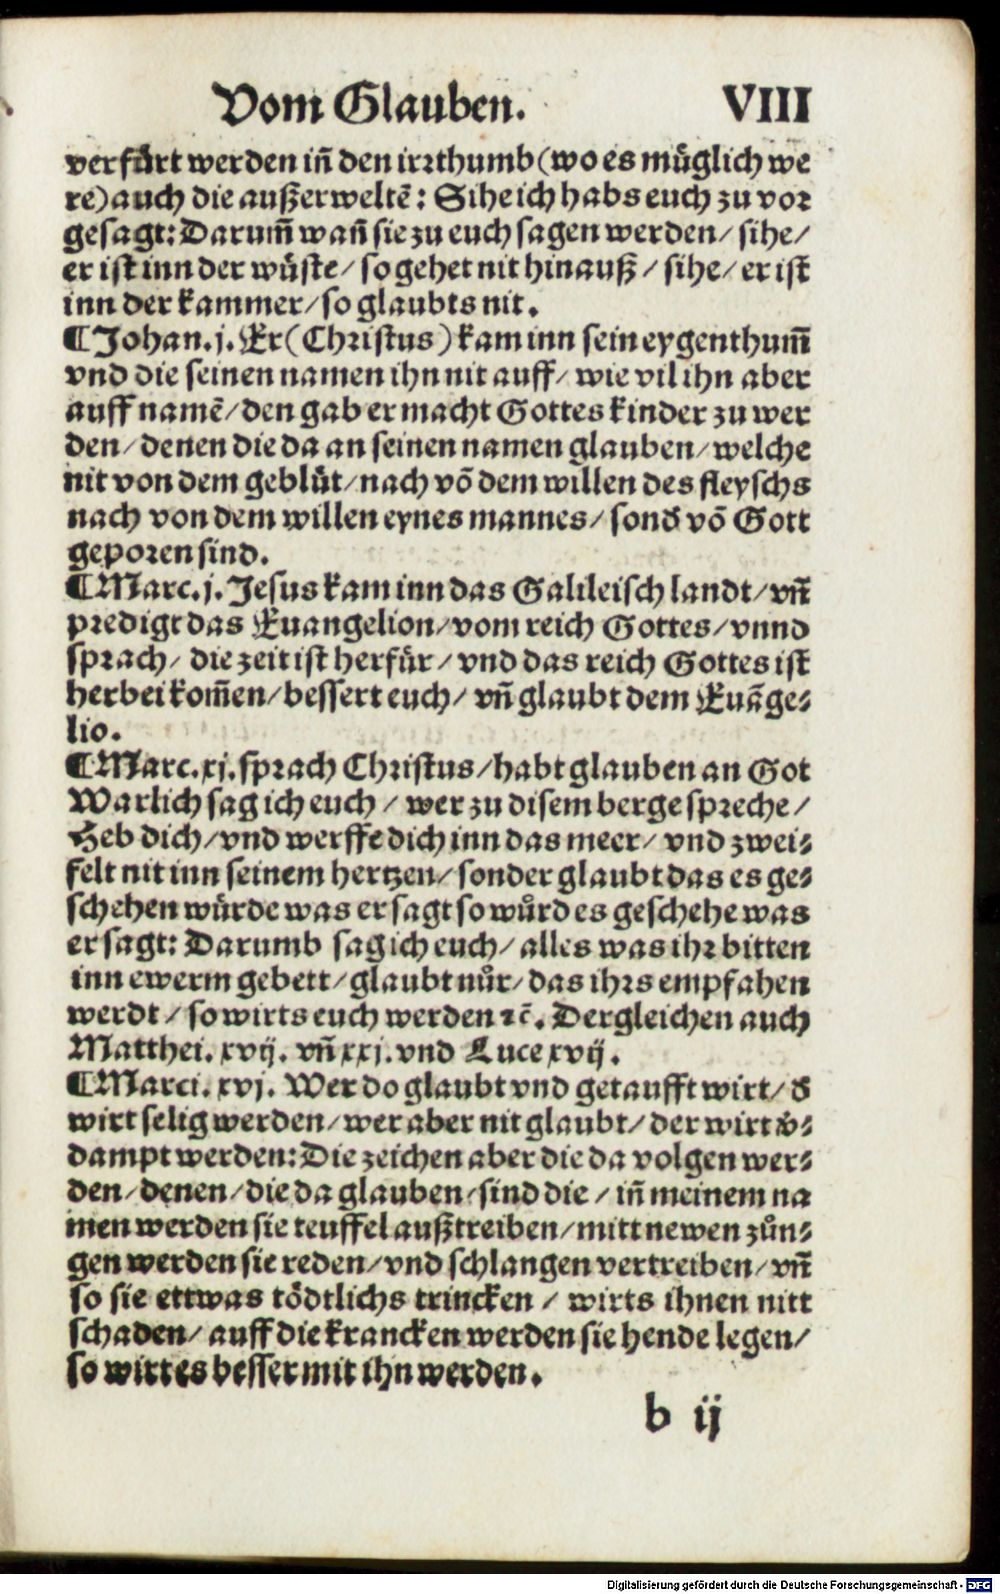 Vom Glauben. VIII
verfürt werden iñ den irꝛthumb (wo es müglich we
re) auch die außerweltẽ: Sihe ich habs euch zu voꝛ
gesagt: Darum̃ wañ sie zu euch sagen werden / sihe /
er ist inn der wüste / so gehet nit hinauß / sihe / er ist
inn der kammer / so glaubts nit.
¶ Johan. j. Er (Chꝛistus) kam inn sein eygenthum̃
vnd die seinen namen ihn nit auff / wie vil ihn aber
auff namẽ / den gab er macht Gottes kinder zu wer
den / denen die da an seinen namen glauben / welche
nit von dem geblüt / nach võ dem willen des fleyschs
nach von dem willen eynes mannes / sonď võ Gott
gepoꝛen sind.
¶ Marc. j. Jesus kam inn das Galileisch landt / vñ
pꝛedigt das Euangelion / vom reich Gottes / vnnd
spꝛach / die zeit ist herfür / vnd das reich Gottes ist
herbei kom̃en / bessert euch / vñ glaubt dem Euãge⸗
lio.
¶ Marc. xj. spꝛach Chꝛistus / habt glauben an Got
Warlich sag ich euch / wer zu disem berge spꝛeche /
Heb dich / vnd werffe dich inn das meer / vnd zwei⸗
felt nit inn seinem hertzen / sonder glaubt das es ge⸗
schehen würde was er sagt so wůrd es geschehe was
er sagt: Darumb sag ich euch / alles was ihꝛ bitten
inn ewerm gebett / glaubt nůr / das ihꝛs empfahen
werdt / so wirts euch werden ꝛc̃. Dergleichen auch
Matthei. xvij. vñ xxj. vnd Luce xvij.
¶ Marci. xvj. Wer do glaubt vnd getaufft wirt / ď
wirt selig werden / wer aber nit glaubt / der wirt v̓⸗
dampt werden: Die zeichen aber die da volgen wer⸗
den / denen / die da glauben / sind die / iñ meinem na
men werden sie teuffel außtreiben / mitt newen zůn⸗
gen werden sie reden / vnd schlangen vertreiben / vñ
so sie ettwas tödtlichs trincken / wirts ihnen nitt
schaden / auff die krancken werden sie hende legen /
so wirt es besser mit ihn werden.
b ij
Digitalisierung gefördert durch die Deutsche Forschungsgemeinschaft - DFG